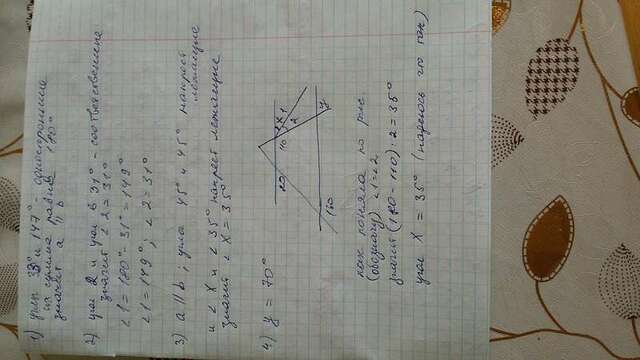 1) углы 33° и 147° - односторонние
их сумма равна 180°
значит a || b
2) угол 2 и угол в 31° - соответственные
значит ∠2 = 31°
∠1 = 180° - 31° = 149°
∠1 = 149° ; ∠2 = 31°
3) a || b ; углы 45° и 45° накрест
лежащие
и ∠ X и ∠ 35° накрест лежащие
значит ∠ X = 35°
4) y = 70°
110 X 1
2
y
как поняла по рис.
(обозначу) ∠1=∠2
значит (180 - 110) : 2 = 35°
угол X = 35° (надеюсь что так)